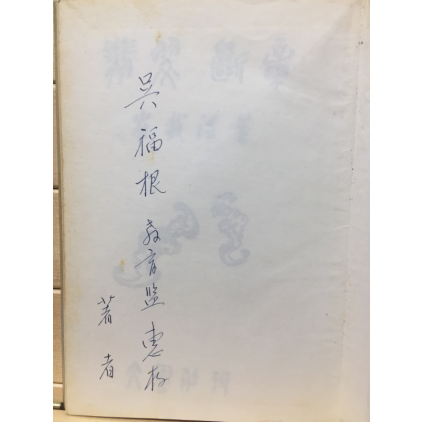 吳福根 敎育監 惠存
著者